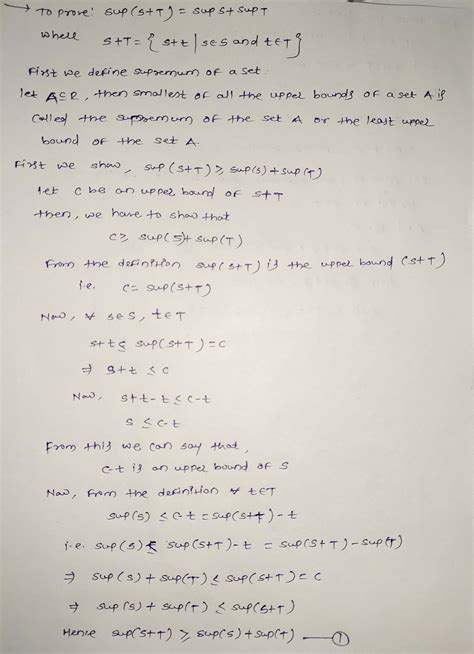 → To prove: sup(S+T) = sup S + sup T
where S+T = { s+t | s∈S and t∈T }
First we define supremum of a set:
let A⊆R, then smallest of all the upper bounds of a set A is
called the supremum of the set A or the least upper
bound of the set A.
First we show, sup(S+T) ≥ sup(S) + sup(T)
let c be an upper bound of S+T
then, we have to show that
c ≥ sup(S) + sup(T)
From the definition sup(S+T) is the upper bound (S+T)
i.e. c = sup(S+T)
Now, ∀ s∈S, t∈T
s+t ≤ sup(S+T) = c
⇒ s+t ≤ c
Now, s+t-t ≤ c-t
s ≤ c-t
From this we can say that,
c-t is an upper bound of S
Now, from the definition ∀ t∈T
sup(S) ≤ c-t = sup(S+T) - t
i.e. sup(S) ≤ sup(S+T) - t = sup(S+T) - sup(T)
⇒ sup(S) + sup(T) ≤ sup(S+T) = c
⇒ sup(S) + sup(T) ≤ sup(S+T)
Hence sup(S+T) ≥ sup(S) + sup(T) — ①